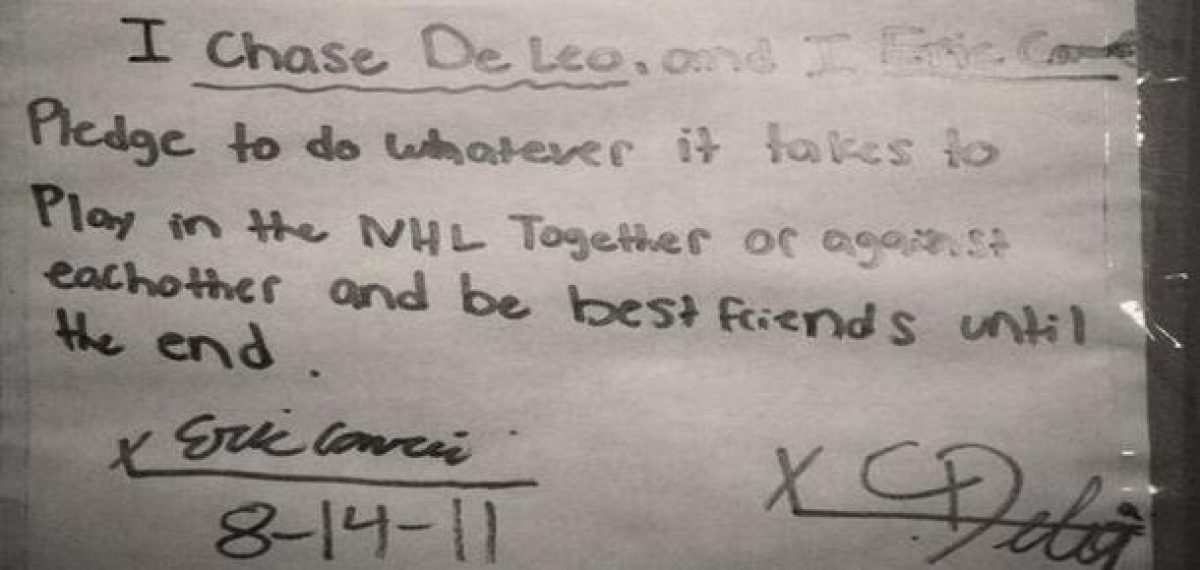 I Chase De Leo, and I Eric
Pledge to do whatever it takes to
Play in the NHL Together or against
eachother and be best friends until
the end.
x Eric
8-14-11
X CDeLeo